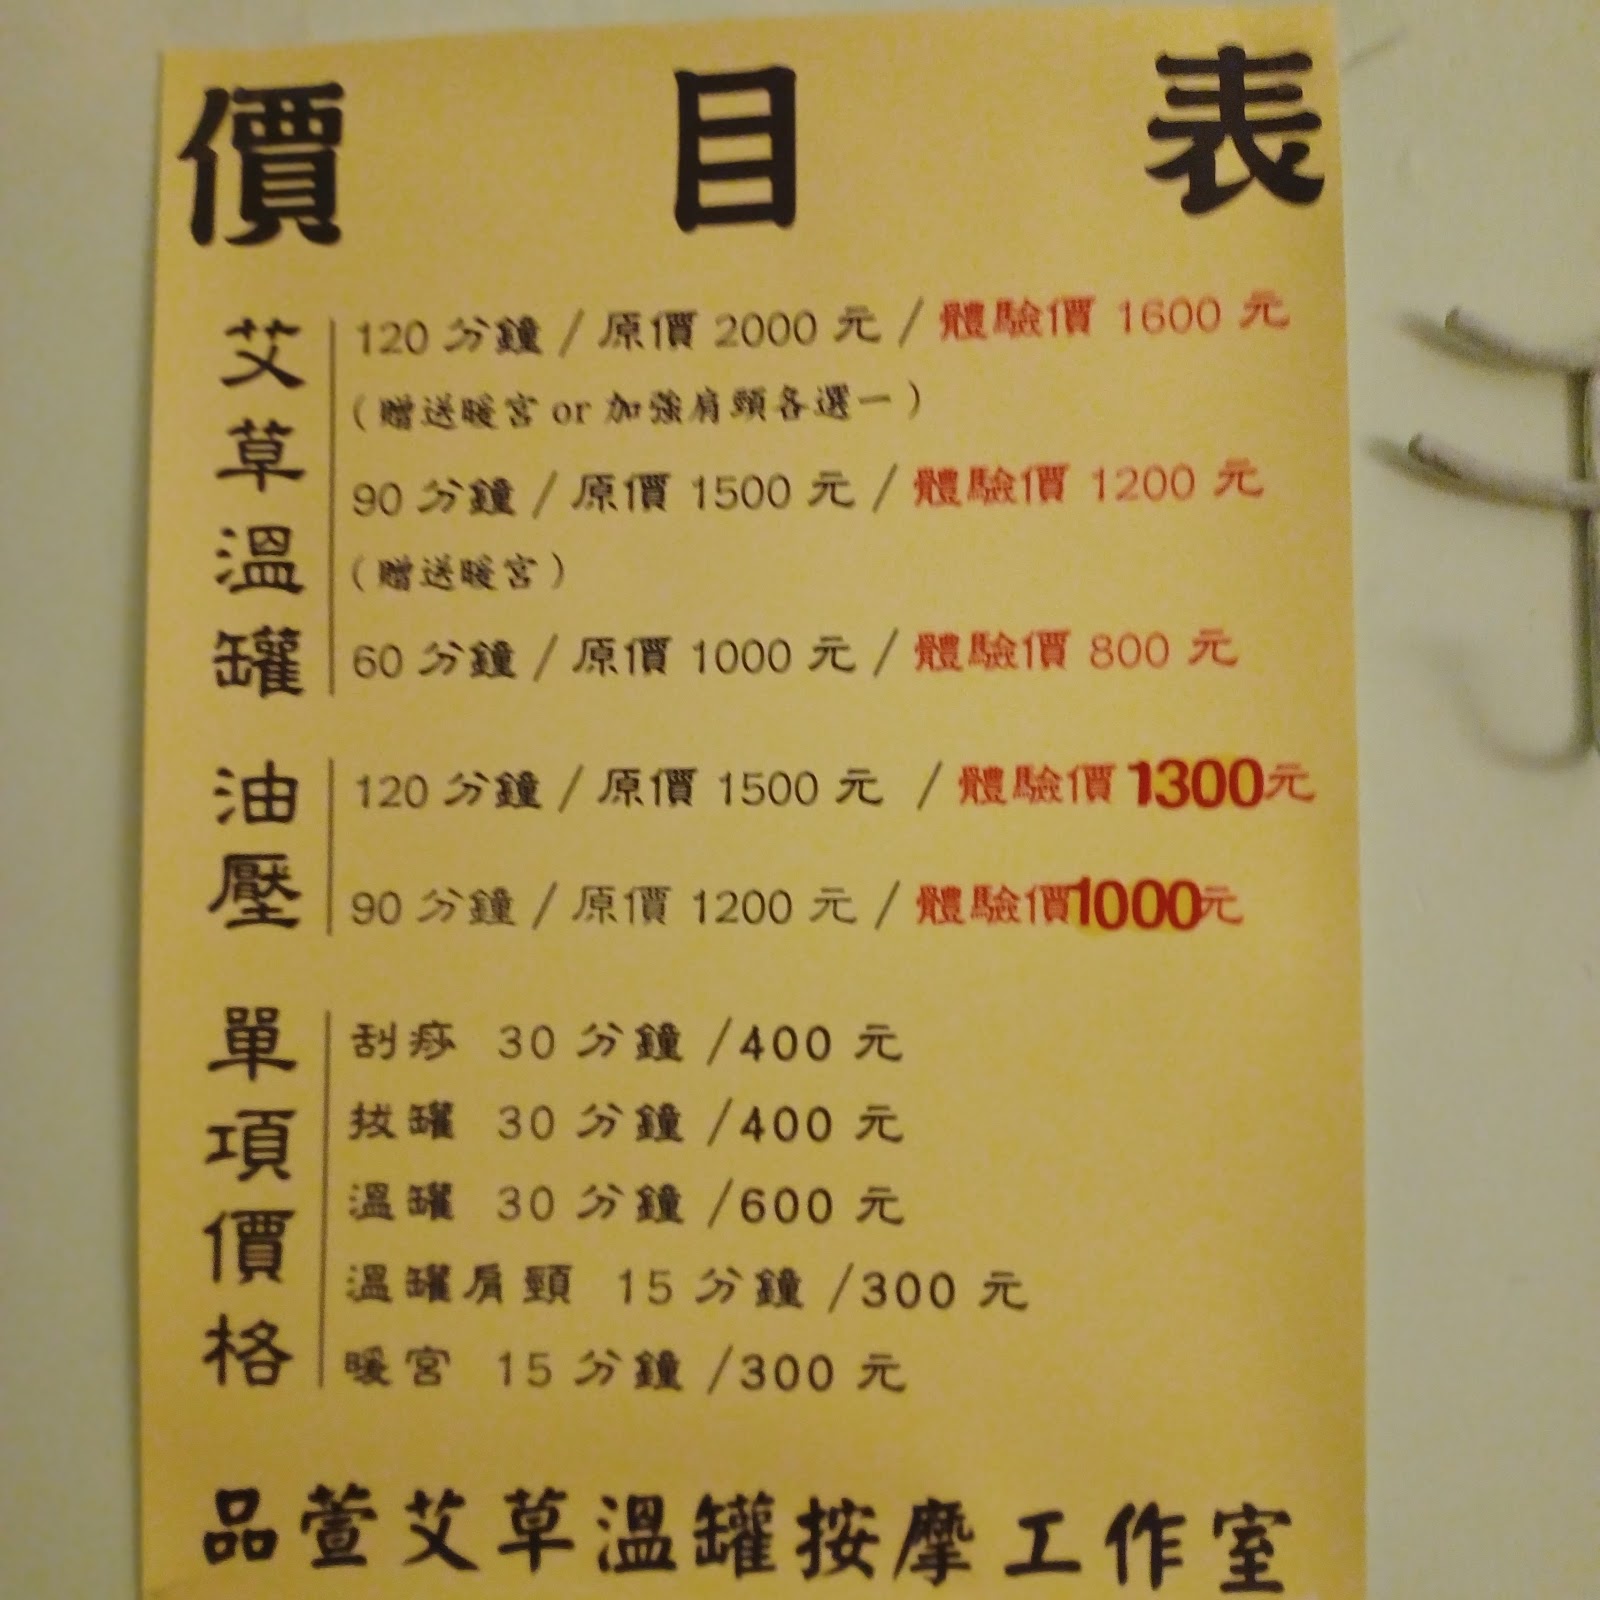 價目表
艾草溫罐
120 分鐘 / 原價 2000 元 / 體驗價 1600 元
(贈送暖宮 or 加強肩頸各選一)
90 分鐘 / 原價 1500 元 / 體驗價 1200 元
(贈送暖宮)
60 分鐘 / 原價 1000 元 / 體驗價 800 元
油壓
120 分鐘 / 原價 1500 元 / 體驗價 1300元
90 分鐘 / 原價 1200 元 / 體驗價1000元
單項價格
刮痧 30 分鐘 /400 元
拔罐 30 分鐘 /400 元
溫罐 30 分鐘 /600 元
溫罐肩頸 15 分鐘 /300 元
暖宮 15 分鐘 /300 元
品萱艾草溫罐按摩工作室